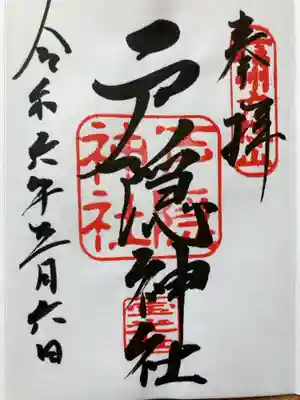 奉拝
戸隠神社
戸隠
神社
令和六年五月六日